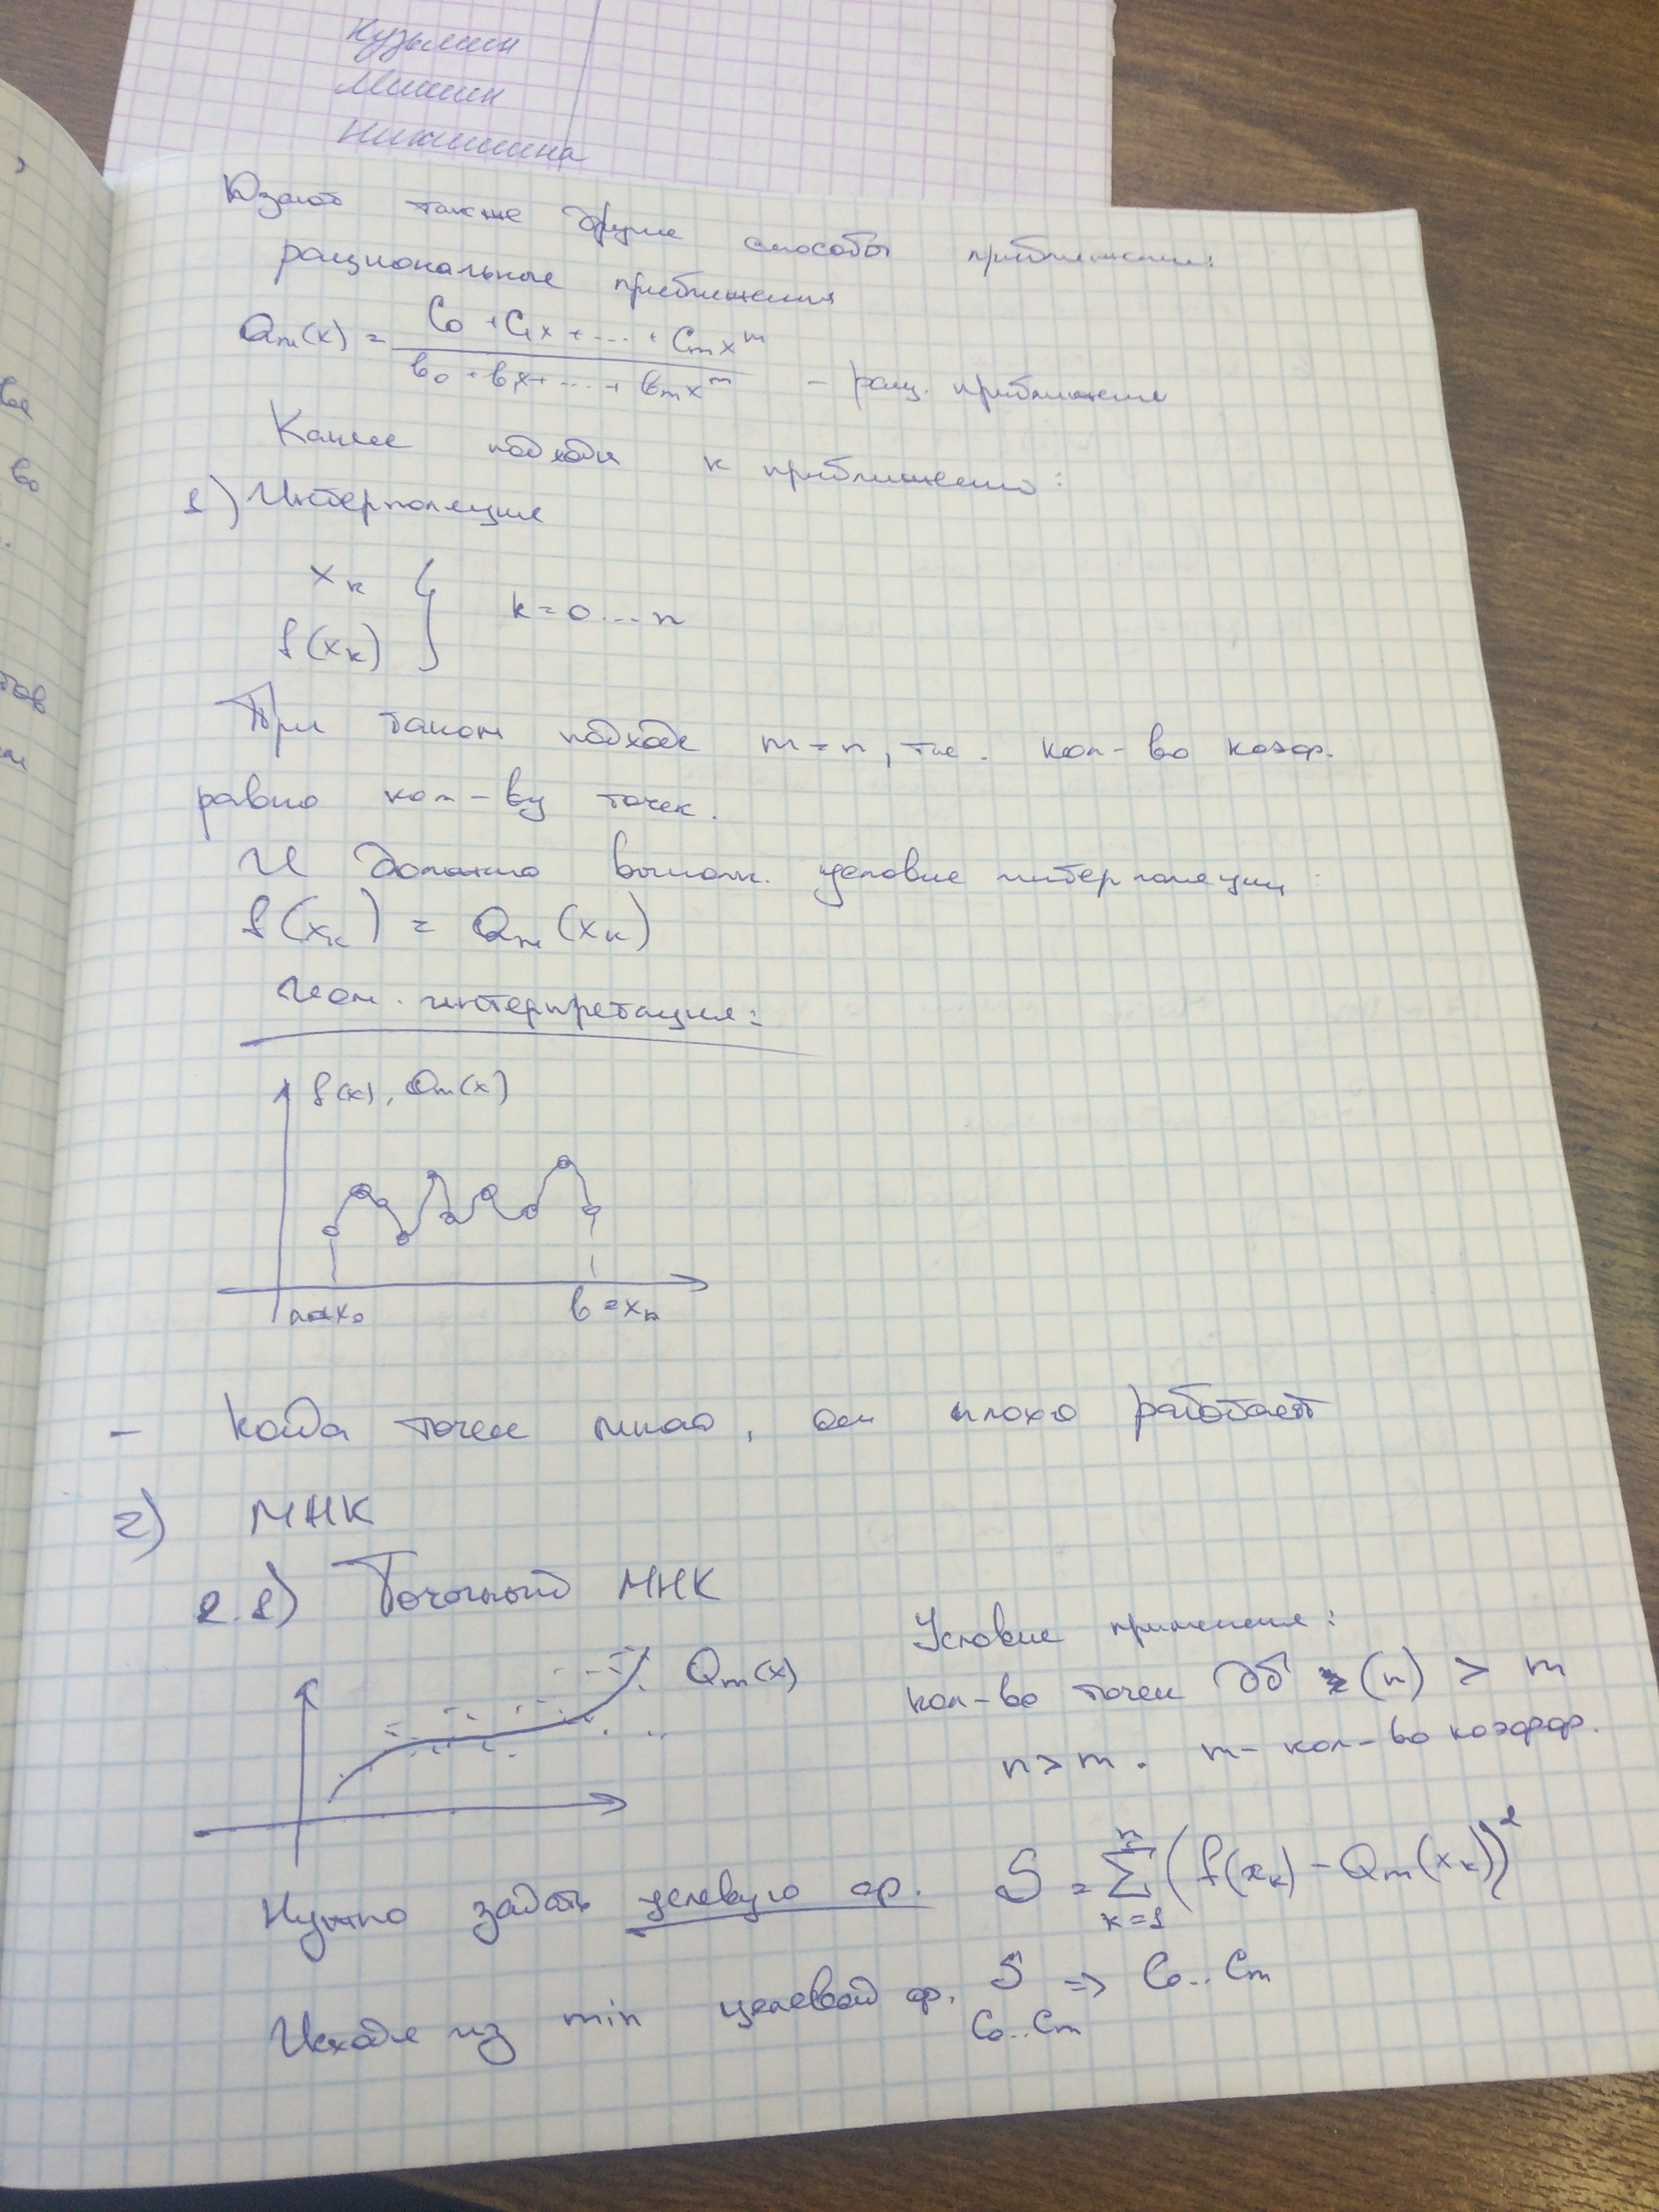 Кузьмин
Мишин
Никишина
Юзают также другие способы приближения:
рациональные приближения
Qm(x) = (C0 + C1x + ... + Cmxᵐ) / (b0 + b1x + ... + bmxᵐ) – рац. приближение
Какие подходы к приближению:
1) Интерполяция
xk
f(xk) } k=0...n
При таком подходе m=n, т.е. кол-во коэф.
равно кол-ву точек.
И должно выполн. условие интерполяции:
f(xk) = Qm(xk)
Геом. интерпретация:
f(x), Qm(x)
a=x0
b=xn
– Когда точек много, он плохо работает
2) МНК
2.1) Точечный МНК
Qm(x)
Условие применения:
кол-во точек дб (n) > m
n>m. m- кол-во коэфф.
Нужно задать целевую ф. S = Σ k=1 n (f(xk) – Qm(xk))²
Исходя из min целевой ф. S => C0..Cm
C0..Cm